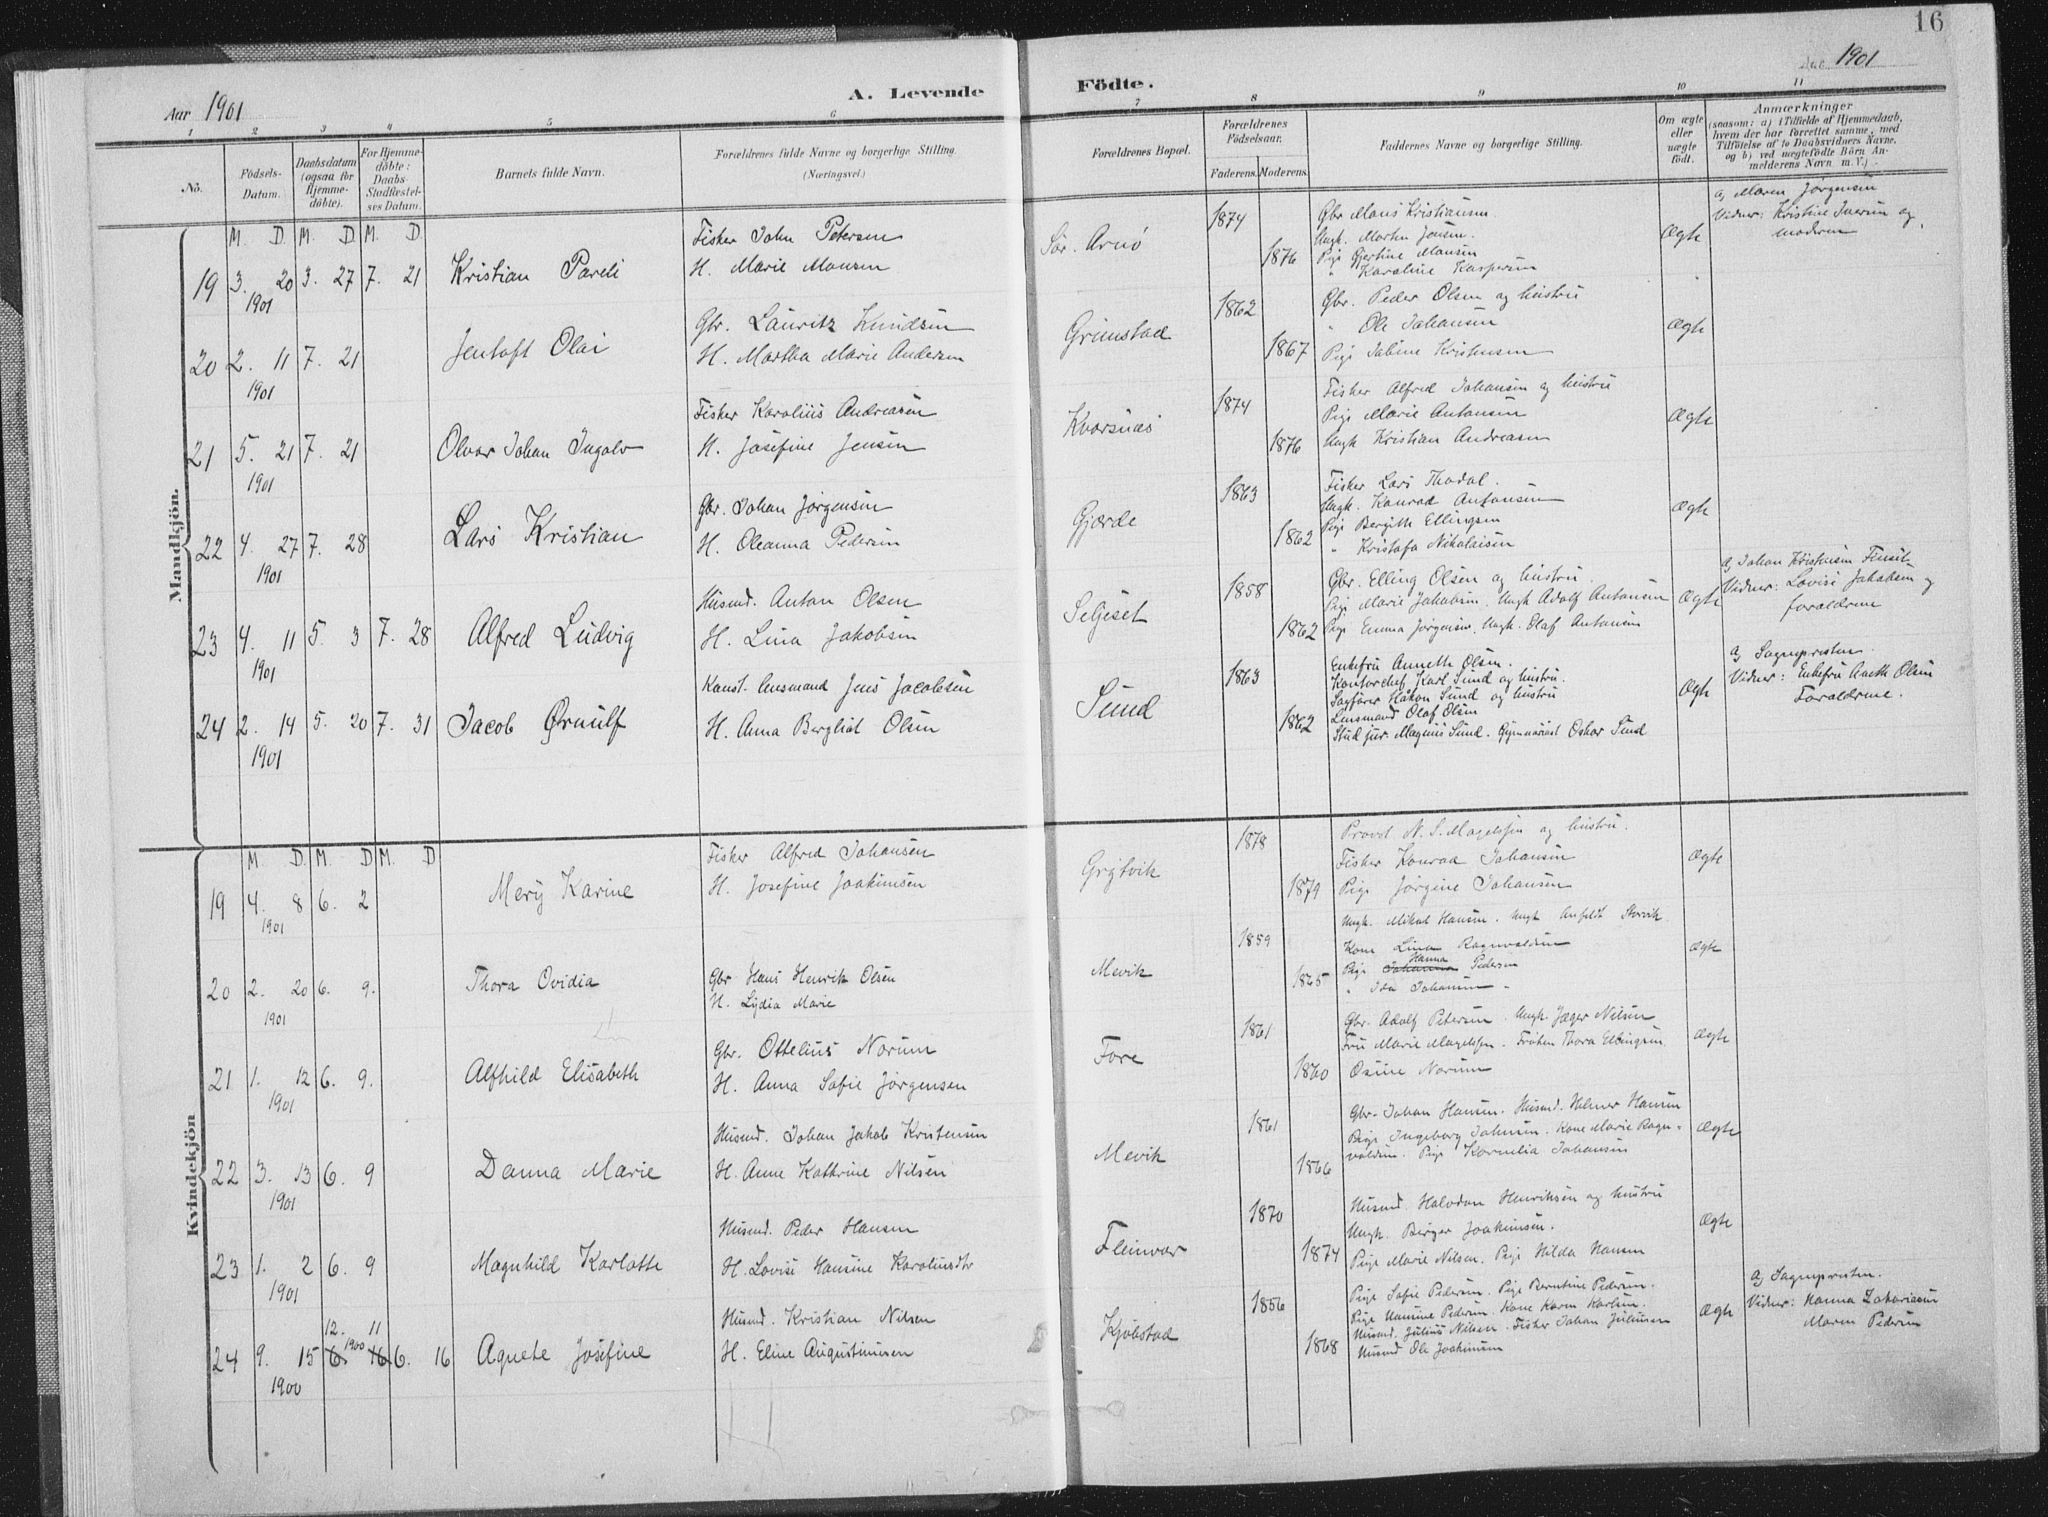 16
Aar 1901
A. Levende Födte.
Aar 1901
1 2 3 4 5 6 7 8 9 10 11
No.
Födsels-Datum.
Daabsdatum (ogsaa for Hjemmedöbte).
For Hjemmedöbte: Daabs Stadfæstelses Datum.
Barnets fulde Navn.
Forældrenes fulde Navne og borgerlige Stilling. (Næringsvei.)
Forældrenes Bopæl.
Forældrenes Födselsaar.
Faderens. Moderens.
Faddernes Navne og borgerlige Stilling.
Om ægte eller uægte födt.
Anmærkninger
(saasom: a) i Tilfælde af Hjemmedaab, hvem der har forrettet samme, med Tilföielse af to Daabsvidners Navne, og b) ved uægtefödte Börn Anmelderens Navn m. V.)
Mandkjön.
M. D. M. D. M. D.
19 3. 20 1901 3. 27 7. 21 Kristian Pareli
Fisker John Petersen
H. Marie Monsen
Sör. Arnö
1874
1876
Gbr Mons Kristiansen.
Ungk. Martin Jensen.
Pige Gjertine Monsen
" Karoline Kaspersen
Ægte
a) Maren Jørgensen
Vidner: Kristine Iversen og
moderen
20 2. 11 1901 7. 21 Jentoft Olai
Gbr. Lauritz Knudsen
H. Martha Marie Andersen
Grimstad
1862
1867
Gbr. Peder Olsen og hustru
" Ole Johansen
Pige Sabine Kristensen
Ægte
21 5. 21 1901 7. 21 Olvar Johan Ingolv
Fisker Karolius Andreasen
H. Josefine Jensen
Kvarsnæs
1874
1876
Fisker Alfred Johansen og hustru
Pige Marie Antonsen
Ungk Kristian Andreasen
Ægte
22 4. 27 1901 7. 28 Lars Kristian
Gbr. Johan Jørgensen
H. Oleanna Pedersen
Gjærde
1863
1862
Fisker Lars Thodal.
Ungk. Konrad Antonsen
Pige Bergith Ellingsen
" Kristofa Nikolaisen
Ægte
23 4. 11 1901 5. 3 7. 28 Alfred Ludvig
Husmd. Anton Olsen
H. Lina Jakobsen
Seljeset
1858
1862
Gbr. Elling Olsen og hustru.
Pige Marie Jakobsen. Ungk Adolf Antonsen
Pige Emma Jørgensen. Ungk. Olaf Antonsen
Ægte
a) Johan Kristensen
Vidner: Lovise Jakobsen og
forældrene
24 2. 14 1901 5. 20 7. 31 Jacob Ørnulf
Konst. lensmand Jens Jacobsen
H. Anna Bergliot Olsen
Sund
1863
1862
Enkefru Anneth Olsen.
Kontorchef Karl Sund og hustru.
Sagfører Håkon Sund og hustru
Lensmand Olaf Olsen
Stud jur. Magnus Sund. Gymnasiast Oskar Sund
Ægte
a) Sognepresten.
Vidner: Enkefru Aneth Olsen
Forældrene.
Kvindekjön
M. D. M. D. M. D
19 4. 8 1901 6. 2 Mery Karine
Fisker Alfred Johansen
H. Josefine Joakimsen
Grytvik
1878
1879
Provst N. S. Magelssen og hustru.
Fisker Konrad Johansen
Pige Jørgine Johansen
Ægte
20 2. 20 1901 6. 9. Thora Ovidia
Gbr Hans Henrik Olsen
H. Lydia Marie
Mevik
1859
1865
Ungk. Mikal Hansen. Ungk Anfeldt Storvik
Kone Lina Ragnvaldsen
Pige Johanna Hanna Pedersen
" Ida Johansen "
Ægte
21 1. 12 1901 6. 9. Alfhild Elisabeth
Gbr. Ottelius Norum
H. Anna Sofie Jørgensen
Fore
1861
1860
Gbr. Adolf Petersen. Ungk. Jæger Nilsen
Fru Marie Magelssen. Frøken Thora Ellingsen
Osine Norum
Ægte
22 3. 13 1901 6. 9 Danna Marie
Husmd. Johan Jakob Kristensen
H. Anne Kathrine Nilsen
Mevik
1861
1866
Gbr. Johan Hansen. Husmd. Hilmer Hansen
Pige Ingeborg Johnsen. Kone Marie Ragn-
valdsen. Pige Kornelia Johansen
Ægte
23 1. 2 1901 6. 9 Magnhild Karlotte
Husmd. Peder Hansen
H. Lovise Hansine Karoliusdtr
Fleinvær
1870
1874
Husmd. Halvdan Henriksen og hustru
Ungk. Birger Joakimsen.
Pige Marie Nilsen. Pige Hilda Hansen
Ægte
24 9. 15 1900 12. 11 1900 6. 16 6. 16 Agnete Josefine
Husmd. Kristian Nilsen
H. Eline Augustinusen
Kjöbstad
1856
1868
Pige Sofie Pedersen. Pige Berntine Pedersen.
Pige Hansine Pedersen. Kone Karen Karlsen.
Husmd. Julius Nilsen. Fisker Johan Juliussen
Husmd Ole Joakimsen
Ægte
a) Sognepresten.
Vidner: Hanna Zakariasen
Maren Pedersen